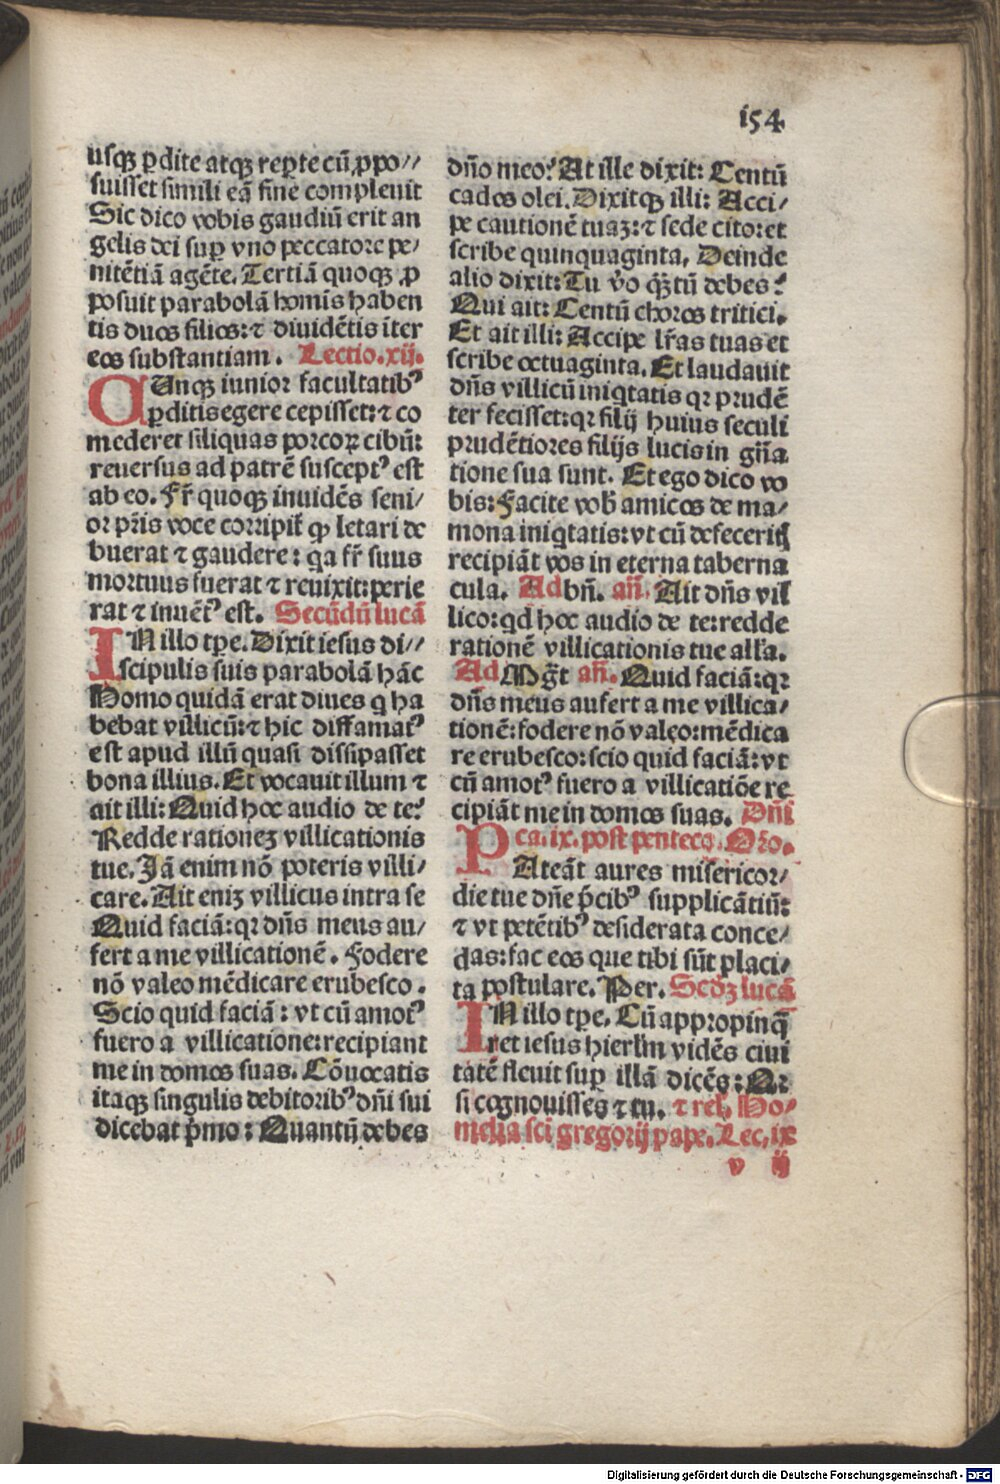 i54
usqꝫ ꝑdite atqꝫ reꝑte cū ꝓpo//
suisset simili eā fine compleuit
Sic dico vobis gaudiū erit an
gelis dei suꝑ vno peccatore pe/
nitētiā agēte. Tertiā quoqꝫ ꝓ
posuit parabolā homis haben
tis duos filios: ⁊ diuidētis īter
eos substantiam. Lectio.xij.
QUnqꝫ iunior facultatibꝰ
ꝑditis egere cepisset: ⁊ co
mederet siliquas porcoꝝ cibū:
reuersus ad patrē susceptꝰ est
ab eo. Fr̄ quoqꝫ inuidēs seni/
or pr̄is voce corripit̄ ꝙ letari de
buerat ⁊ gaudere: qa fr̄ suus
mortuus fuerat ⁊ reuixit: perie
rat ⁊ inuētꝰ est. Secūdū lucā
IN illo tꝑe. Dixit iesus di//
scipulis suis parabolā hāc
Homo quidā erat diues q ha
bebat villicū: ⁊ hic diffamatꝰ
est apud illū quasi dissipasset
bona illius. Et vocauit illum ⁊
ait illi: Quid hoc audio de te?
Redde rationeꝫ villicationis
tue. Jā enim nō poteris villi/
care. Ait eniꝫ villicus intra se
Quid faciā: qꝛ dn̄s meus au/
fert a me villicationē. Fodere
nō valeo mēdicare erubesco.
Scio quid faciā: vt cū amotꝰ
fuero a villicatione: recipiant
me in domos suas. Cōuocatis
itaqꝫ singulis debitoribꝰ dn̄i sui
dicebat p̄mo: Quantū debes
dn̄o meo? At ille dixit: Centū
cados olei. Dixitqꝫ illi: Acci/
pe cautionē tuaꝫ: ⁊ sede cito: et
scribe quinquaginta. Deinde
alio dixit: Tu v̄o qꝗtū debes?
Qui ait: Centū choros tritici.
Et ait illi: Accipe lr̄as tuas et
scribe octuaginta. Et laudauit
dn̄s villicū iniqtatis qꝛ prudē
ter fecisset: qꝛ filij huius seculi
prudētiores filijs lucis in gn̄a
tione sua sunt. Et ego dico vo
bis: Facite vob̄ amicos de ma/
mona iniqtatis: vt cū defecerit̄
recipiāt vos in eterna taberna
cula. Ad bn̄. an̄. Ait dn̄s vil
lico: qd hoc audio de te: redde
rationē villicationis tue all'a.
Ad Mg̅t an̄. Quid faciā: qꝛ
dn̄s meus aufert a me villica/
tionē: fodere nō valeo: mēdica
re erubesco: scio quid faciā: vt
cū amotꝰ fuero a villicatiōe re
cipiāt me in domos suas. Dn̄i
ca.ix. post pentecō. Oꝛo.
PAteāt aures misericor/
die tue dn̄e p̄cibꝰ supplicātiū:
⁊ vt petētibꝰ desiderata conce/
das: fac eos que tibi sūt placi/
ta postulare. Per. Scdꝫ lucā
IN illo tꝑe. Cū appropinq̄
ret iesus hierlm̄ vidēs ciui
tatē fleuit suꝑ illā dicēs: Qꝛ
si cognouisses ⁊ tu. ⁊ rel. Ho/
melia sci gregorij pape. Lec. ix
v ij
Digitalisierung gefördert durch die Deutsche Forschungsgemeinschaft - DFG